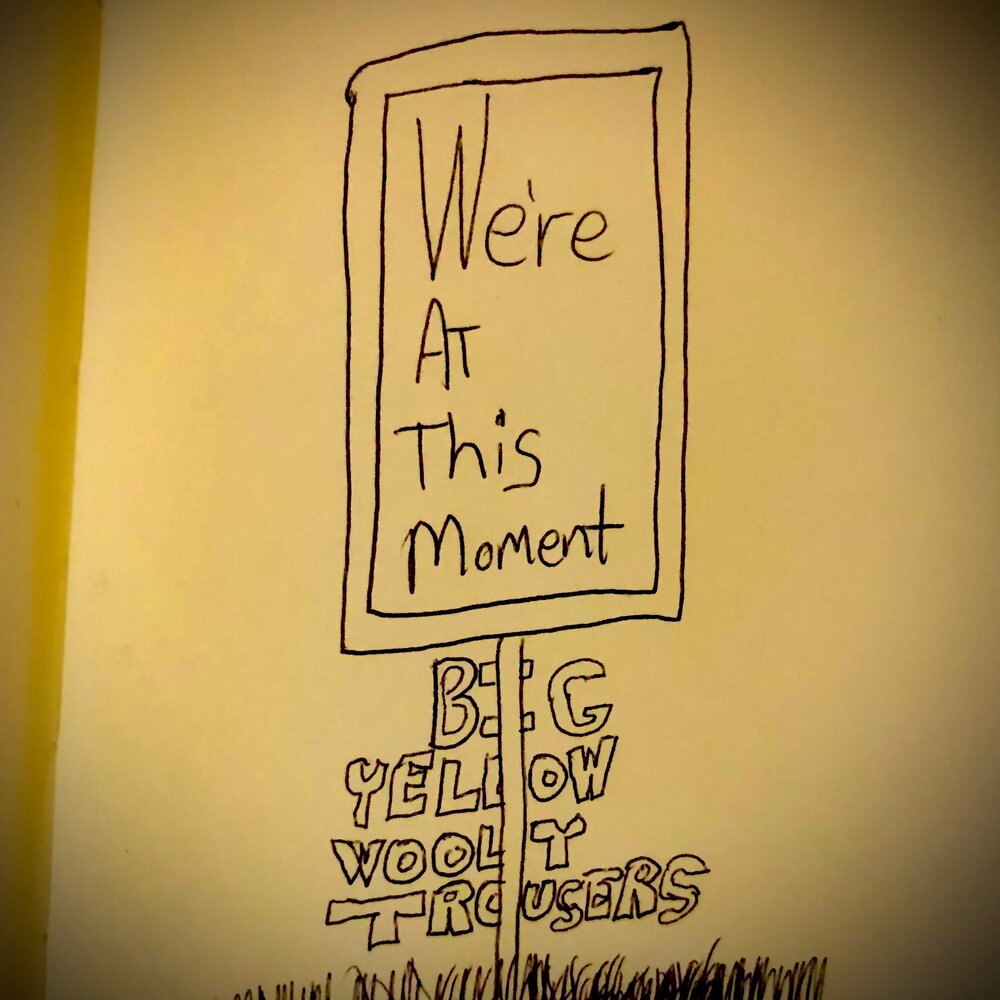 We're
At
This
Moment
BIG
YELLOW
WOOLY
TROUSERS